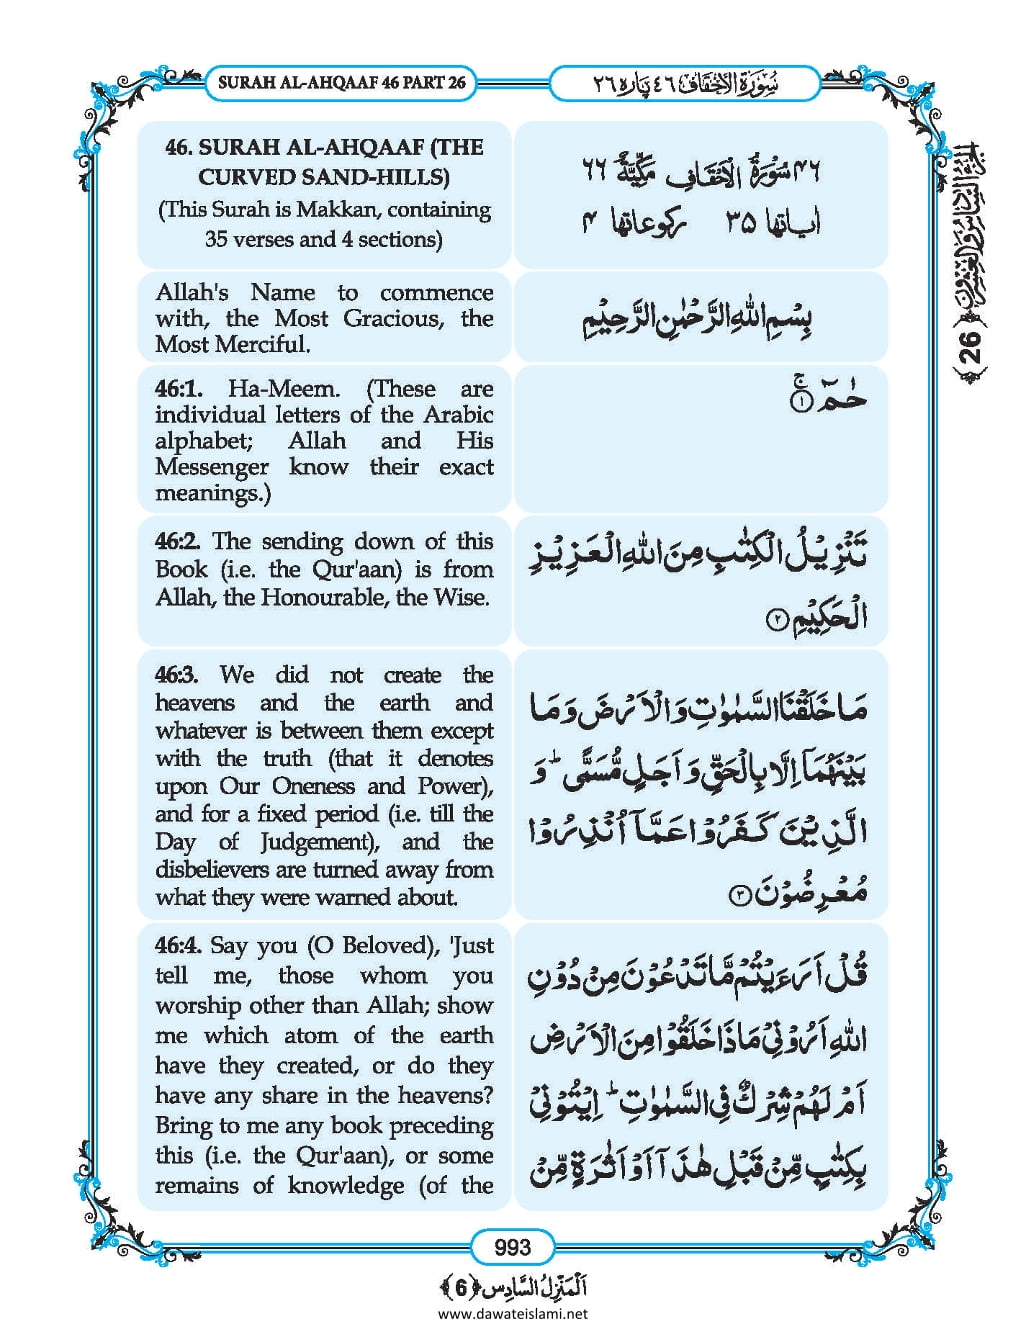 SURAH AL-AHQAAF 46 PART 26
سُوْرَةُ الْاَحْقَاف ٤٦ پاره ٢٦
46. SURAH AL-AHQAAF (THE
CURVED SAND-HILLS)
(This Surah is Makkan, containing
35 verses and 4 sections)
٤٦ سُوْرَةُ الْاَحْقَافِ مَكِّيَّةٌ ٦٦
اٰیاتها ٣٥ ركوعاتها ٤
Allah's Name to commence
with, the Most Gracious, the
Most Merciful.
بِسْمِ اللّٰهِ الرَّحْمٰنِ الرَّحِيْمِ
46:1. Ha-Meem. (These are
individual letters of the Arabic
alphabet; Allah and His
Messenger know their exact
meanings.)
حٰمٓ ۚ﴿١﴾
46:2. The sending down of this
Book (i.e. the Qur'aan) is from
Allah, the Honourable, the Wise.
تَنْزِيْلُ الْكِتٰبِ مِنَ اللّٰهِ الْعَزِيْزِ
الْحَكِيْمِ ﴿٢﴾
46:3. We did not create the
heavens and the earth and
whatever is between them except
with the truth (that it denotes
upon Our Oneness and Power),
and for a fixed period (i.e. till the
Day of Judgement), and the
disbelievers are turned away from
what they were warned about.
مَا خَلَقْنَا السَّمٰوٰتِ وَ الْاَرْضَ وَ مَا
بَيْنَهُمَاۤ اِلَّا بِالْحَقِّ وَ اَجَلٍ مُّسَمًّى ؕ وَ
الَّذِيْنَ كَفَرُوْا عَمَّاۤ اُنْذِرُوْا
مُعْرِضُوْنَ ﴿٣﴾
46:4. Say you (O Beloved), 'Just
tell me, those whom you
worship other than Allah; show
me which atom of the earth
have they created, or do they
have any share in the heavens?
Bring to me any book preceding
this (i.e. the Qur'aan), or some
remains of knowledge (of the
قُلْ اَرَءَيْتُمْ مَّا تَدْعُوْنَ مِنْ دُوْنِ
اللّٰهِ اَرُوْنِيْ مَاذَا خَلَقُوْا مِنَ الْاَرْضِ
اَمْ لَهُمْ شِرْكٌ فِي السَّمٰوٰتِ ؕ اِيْتُوْنِيْ
بِكِتٰبٍ مِّنْ قَبْلِ هٰذَاۤ اَوْ اَثٰرَةٍ مِّنْ
الجزء السادس والعشرون ﴿26﴾
993
اَلْمَنْزِلُ السَّادِس ﴿6﴾
www.dawateislami.net